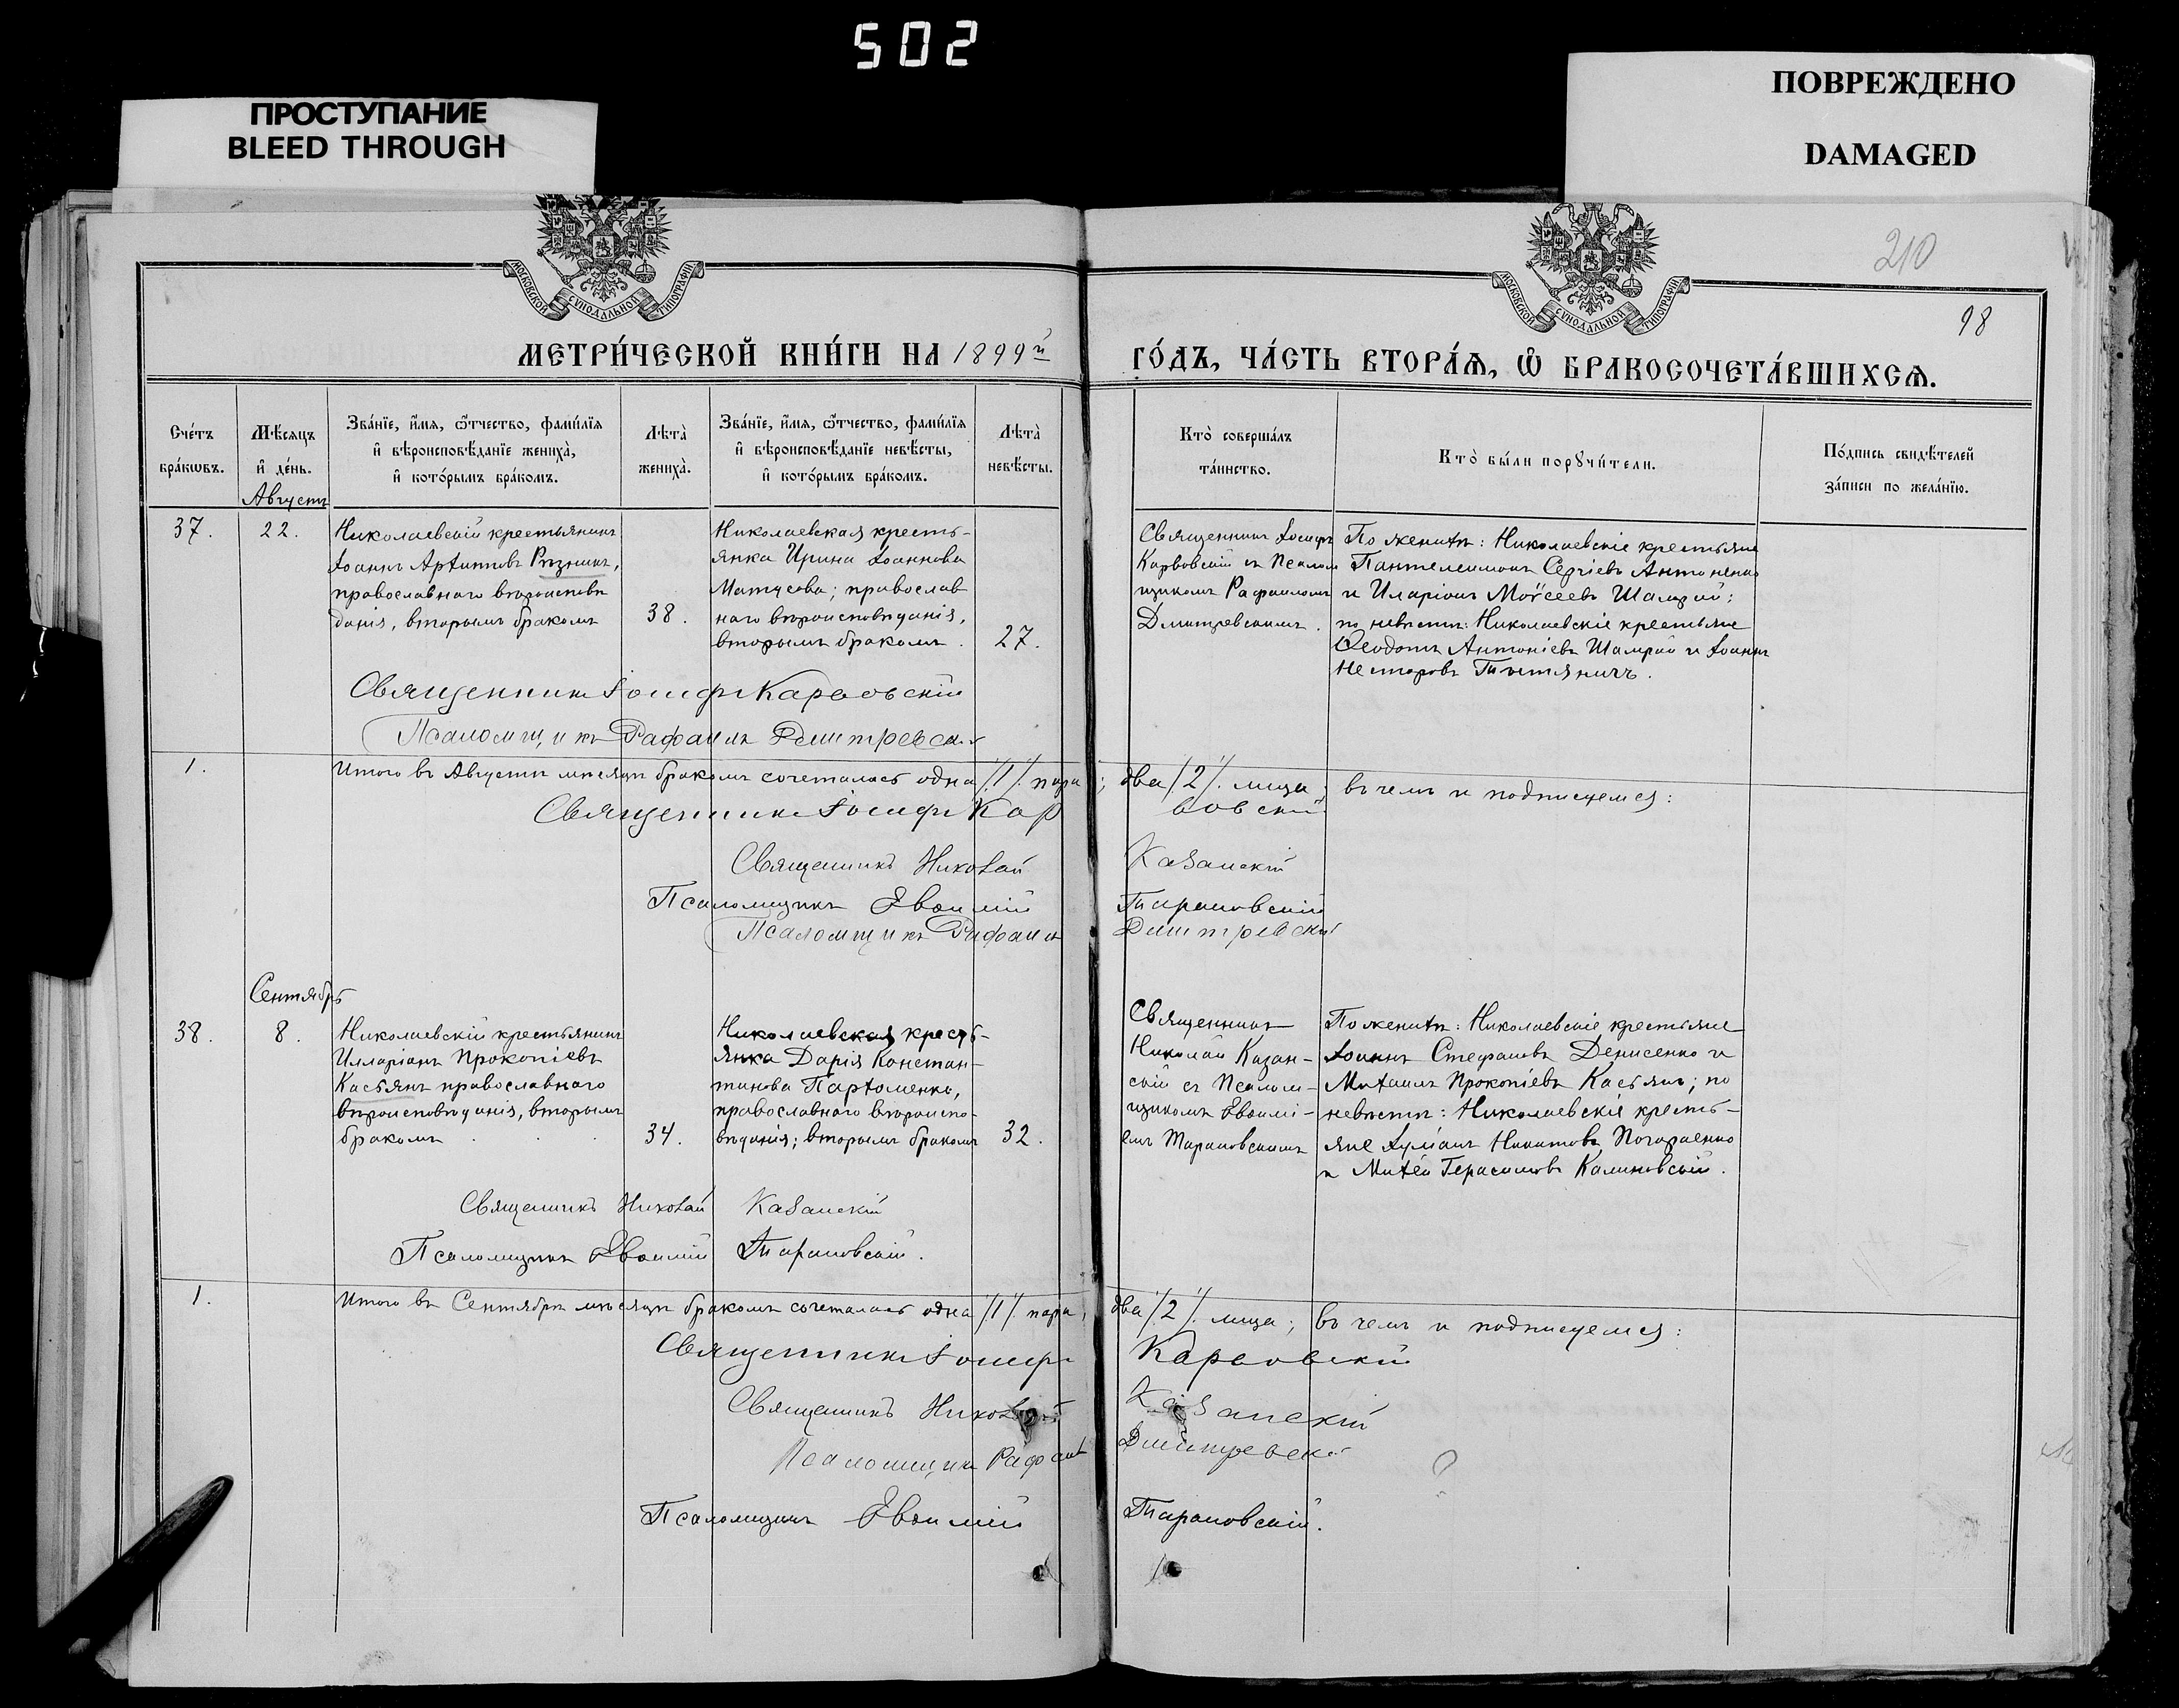 502
ПРОСТУПАНИЕ
BLEED THROUGH
ПОВРЕЖДЕНО
DAMAGED
МОСКОВСКОЙ СѴНОДАЛЬНОЙ ТИПОГРАФІИ
МОСКОВСКОЙ СѴНОДАЛЬНОЙ ТИПОГРАФІИ
210
98
МЕТРИ́ЧЕСКОЙ КНИ́ГИ НА 1899й
ГО́ДЪ, ЧА́СТЬ ВТОРА́Ѧ, Ѽ БРАКОСОЧЕТА́ВШИХСѦ.
Сче́тъ
бра́кѡвъ.
Мѣ́сѧцъ
и҆ де́нь.
Зва́нїе, и҆́мѧ, ѻ҆́тчество, фами́лїѧ
и҆ вѣроисповѣ́данїе жениха̀,
и҆ кото́рымъ бра́комъ.
Лѣта̀
жениха̀.
Зва́нїе, и҆́мѧ, ѻ҆́тчество, фами́лїѧ
и҆ вѣроисповѣ́данїе невѣ́сты,
и҆ кото́рымъ бра́комъ.
Лѣта̀
невѣ́сты.
Кто̀ соверша́лъ
та́инство.
Кто̀ бы́ли порꙋчи́тели.
По́дпись свидѣ́телей
за́писи по жела́нїю.
Августъ
37.
22.
Николаевскій крестьянинъ
Іоаннъ Архиповъ Рѣзникъ,
православнаго вѣроисповѣ
данія, вторымъ бракомъ
38.
Николаевская кресть-
янка Ирина Іоаннова
Матусова; православ
наго вѣроисповѣданія,
вторымъ бракомъ.
27.
Священникъ Іосифъ
Карвовскій съ Псалом
щикомъ Рафаиломъ
Дмитревскимъ.
По женихѣ: Николаевскіе крестьяне
Пантелеимонъ Сергіевъ Антоненко
и Иларіонъ Моѵсеевъ Шамрай;
по невѣстѣ: Николаевскіе крестьяне
Ѳеодотъ Антоніевъ Шамрай и Іоаннъ
Несторовъ
Священникъ Іосифъ Карвовскій
Псаломщикъ Рафаилъ Дмитревскій
1.
Итого въ Августѣ мѣсяцѣ бракомъ сочеталась одна /1/ пара; два /2/ лица; въ чемъ и подписуемся:
Священникъ Іосифъ Карвовскій
Священникъ Николай Казанскій
Псаломщикъ Евѳимій Тарановскій
Псаломщикъ Рафаилъ Дмитревскій
Сентябрь
38.
8.
Николаевскій крестьянинъ
Илларіонъ Прокопіевъ
Касьянъ православнаго
вѣроисповѣданія, вторымъ
бракомъ
34.
Николаевская кресть-
янка Дарія Констан-
тинова Пархоменко,
православнаго вѣроиспо-
вѣданія; вторымъ бракомъ
32.
Священникъ
Николай Казан-
скій съ Псалом-
щикомъ Евѳимі-
емъ Тарановскимъ
По женихѣ: Николаевскіе крестьяне
Іоаннъ Стефановъ Денисенко и
Михаилъ Прокопіевъ Касьянъ; по
невѣстѣ: Николаевскіе кресть-
яне Іуліанъ Никитовъ
и Михей Герасимовъ Калиновскій.
Священникъ Николай Казанскій
Псаломщикъ Евѳимій Тарановскій.
1.
Итого въ Сентябрѣ мѣсяцѣ бракомъ сочеталась одна /1/ пара, два /2/ лица; въ чемъ и подписуемся:
Священникъ Іосифъ Карвовскій
Священникъ Николай Казанскій
Псаломщикъ Рафаилъ Дмитревскій
Псаломщикъ Евѳимій Тарановскій.